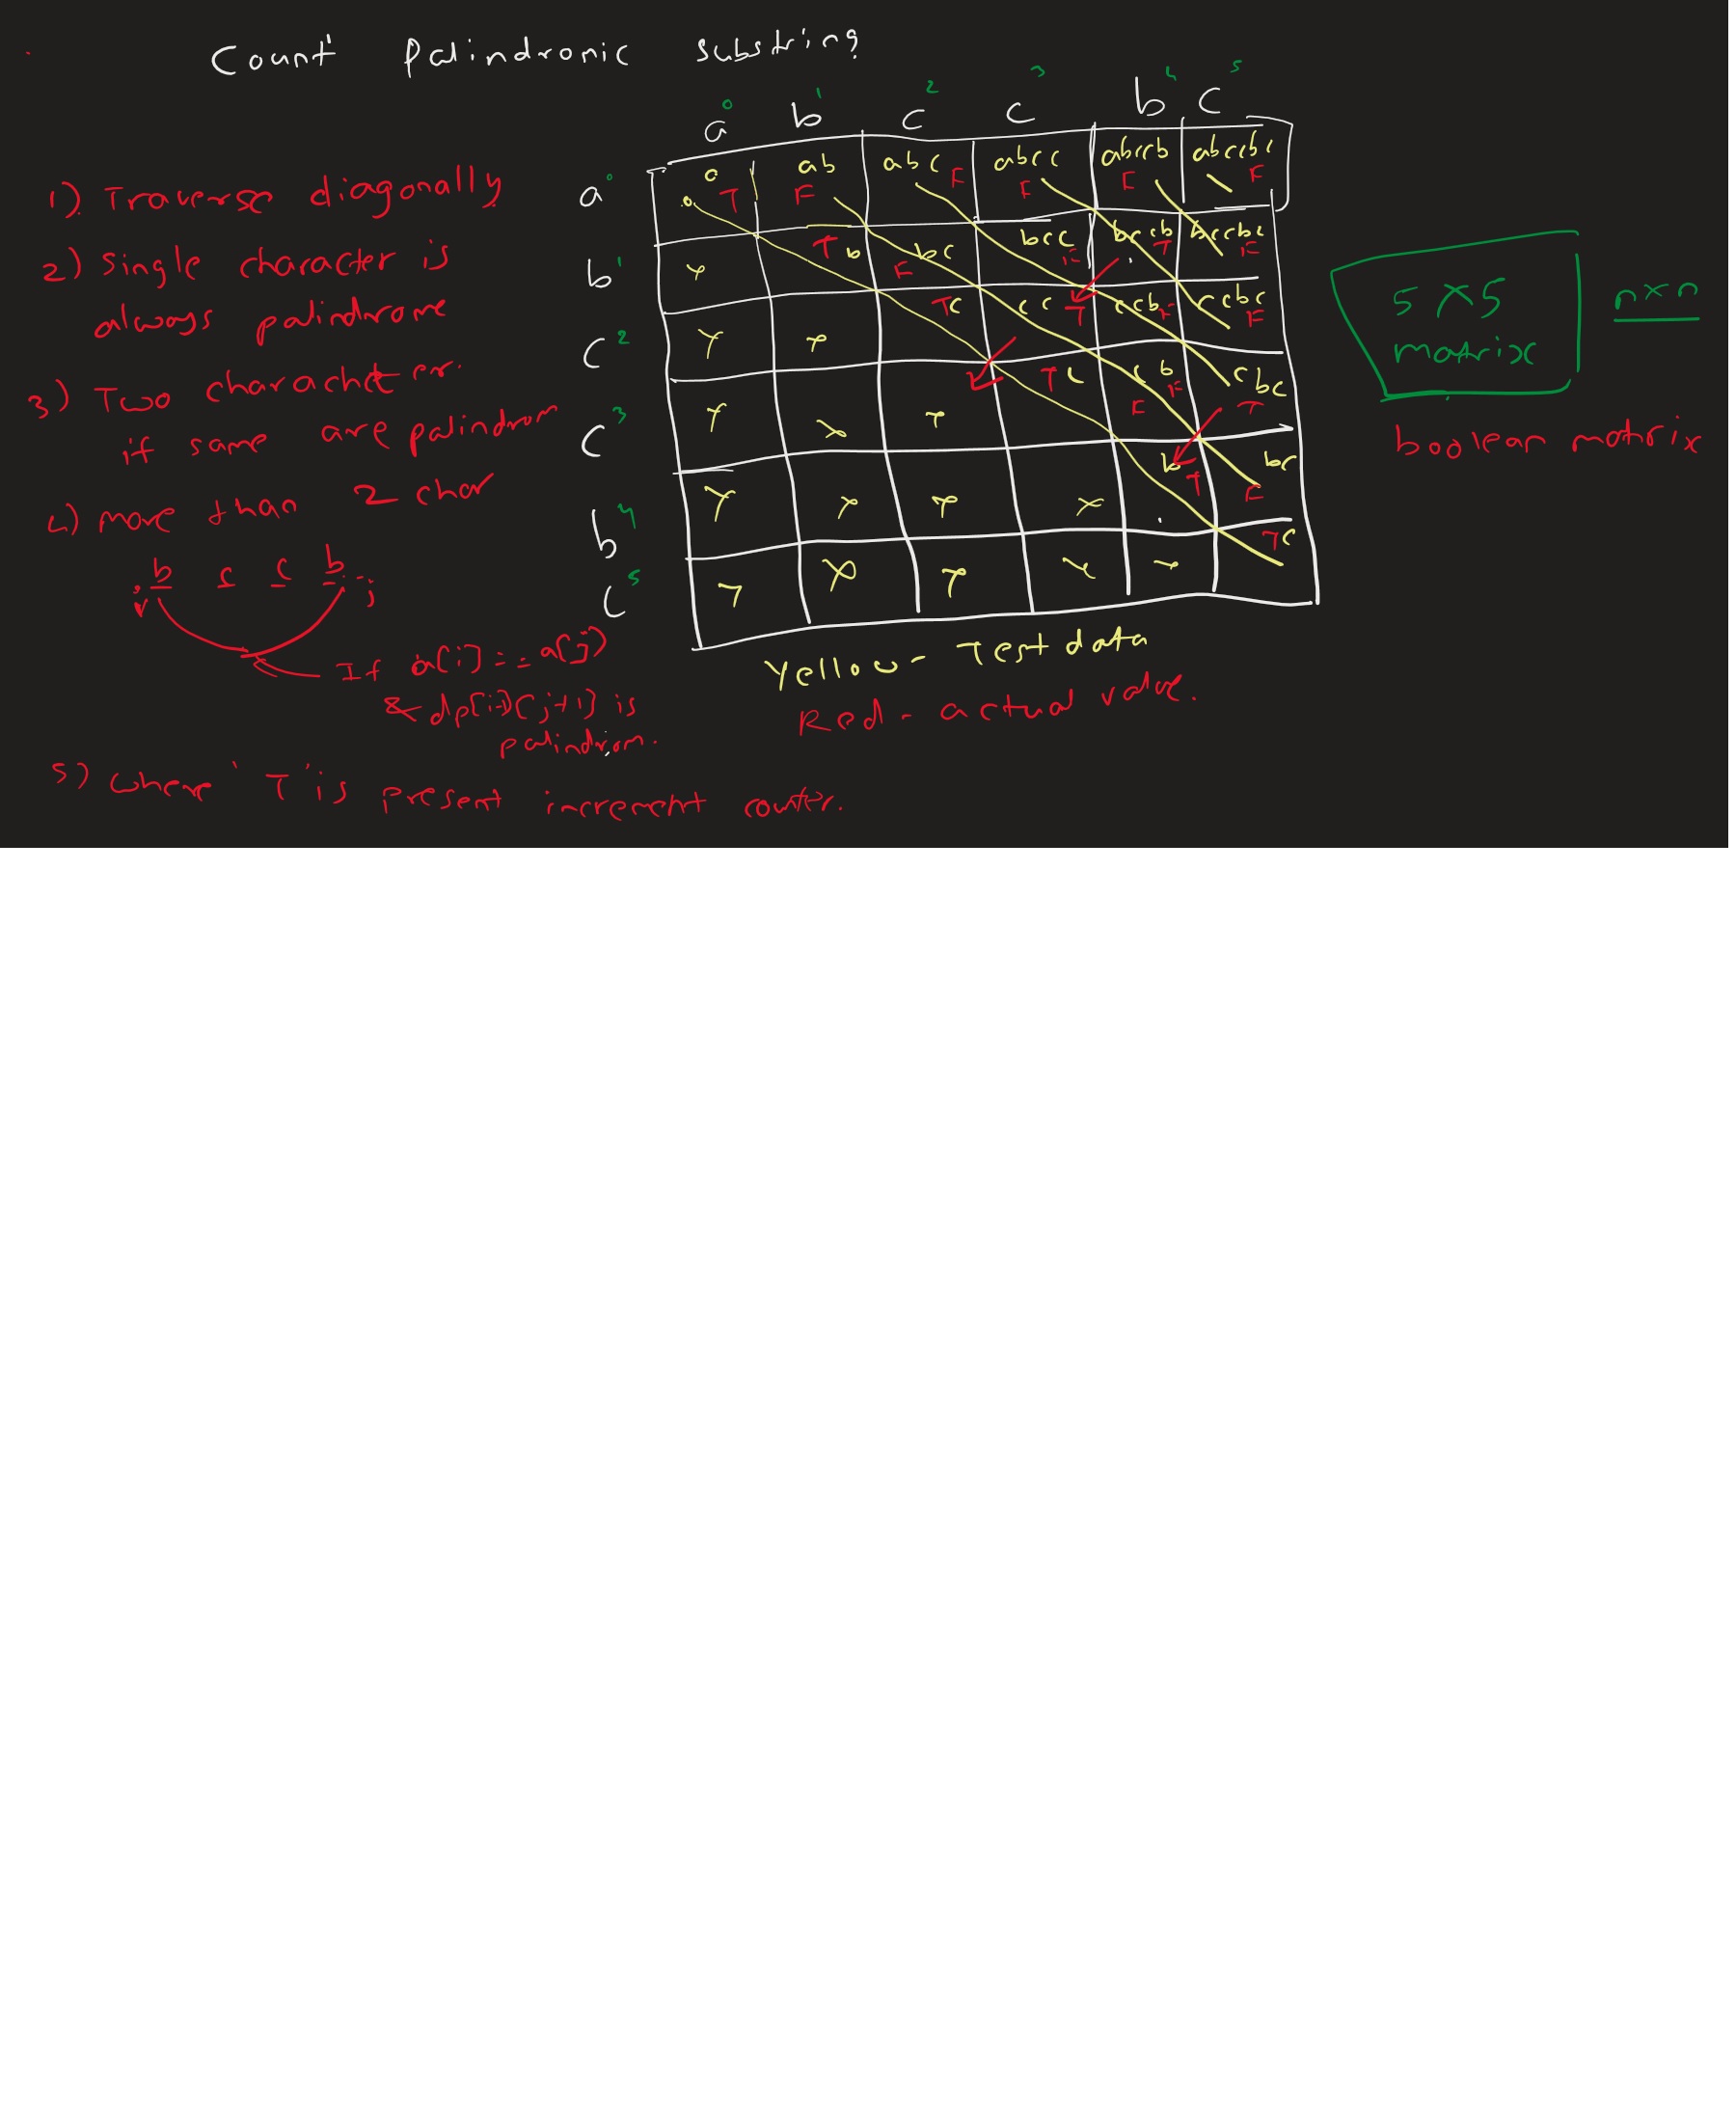 Count Palindronic Substring
0 1 2 3 4 5
a b c c b c
1) Traverse diagonally
2) Single character is
always palindrome
3) Two charachter
if same are palindrom
4) more than 2 char
b c c b
i j
If a[i] == a[j]
& dp[i-1][j+1] is
palindrom.
5) Where 'T' is present increment counter.
a 0 a T ab F abc F abcc F abccb F abccbc F
b 1 T b bc F bcc F bccb T bccbc F
c 2 T c cc T ccb F ccbc F
c 3 T c cb F F cbc T
b 4 b T bc F
c 5 T c
Yellow - Test data
Red - actual value.
5 X 5
matrix
nxn
boolean matrix